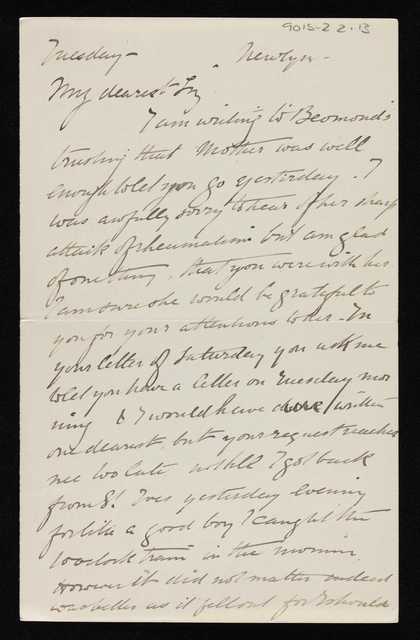 9015-2 2-13
Tuesday - Newlyn -
My dearest
I am writing to Beomond's
trusting that Mother was well
enough to let you go yesterday. I
was awfully sorry to hear of her sharp
attack of rheumatism but am glad
of one thing, that you were with her
I am sure she would be grateful to
you for your attentions to her - In
your letter of Saturday you ask me
to let you have a letter on Tuesday mor
ning & I would have written
one dearest, but your request reached
me too late until I got back
from S! Ives yesterday evening
for like a good boy I caught the
10 oclock train in the morning
However it did not matter indeed
was better as it fell out for I should